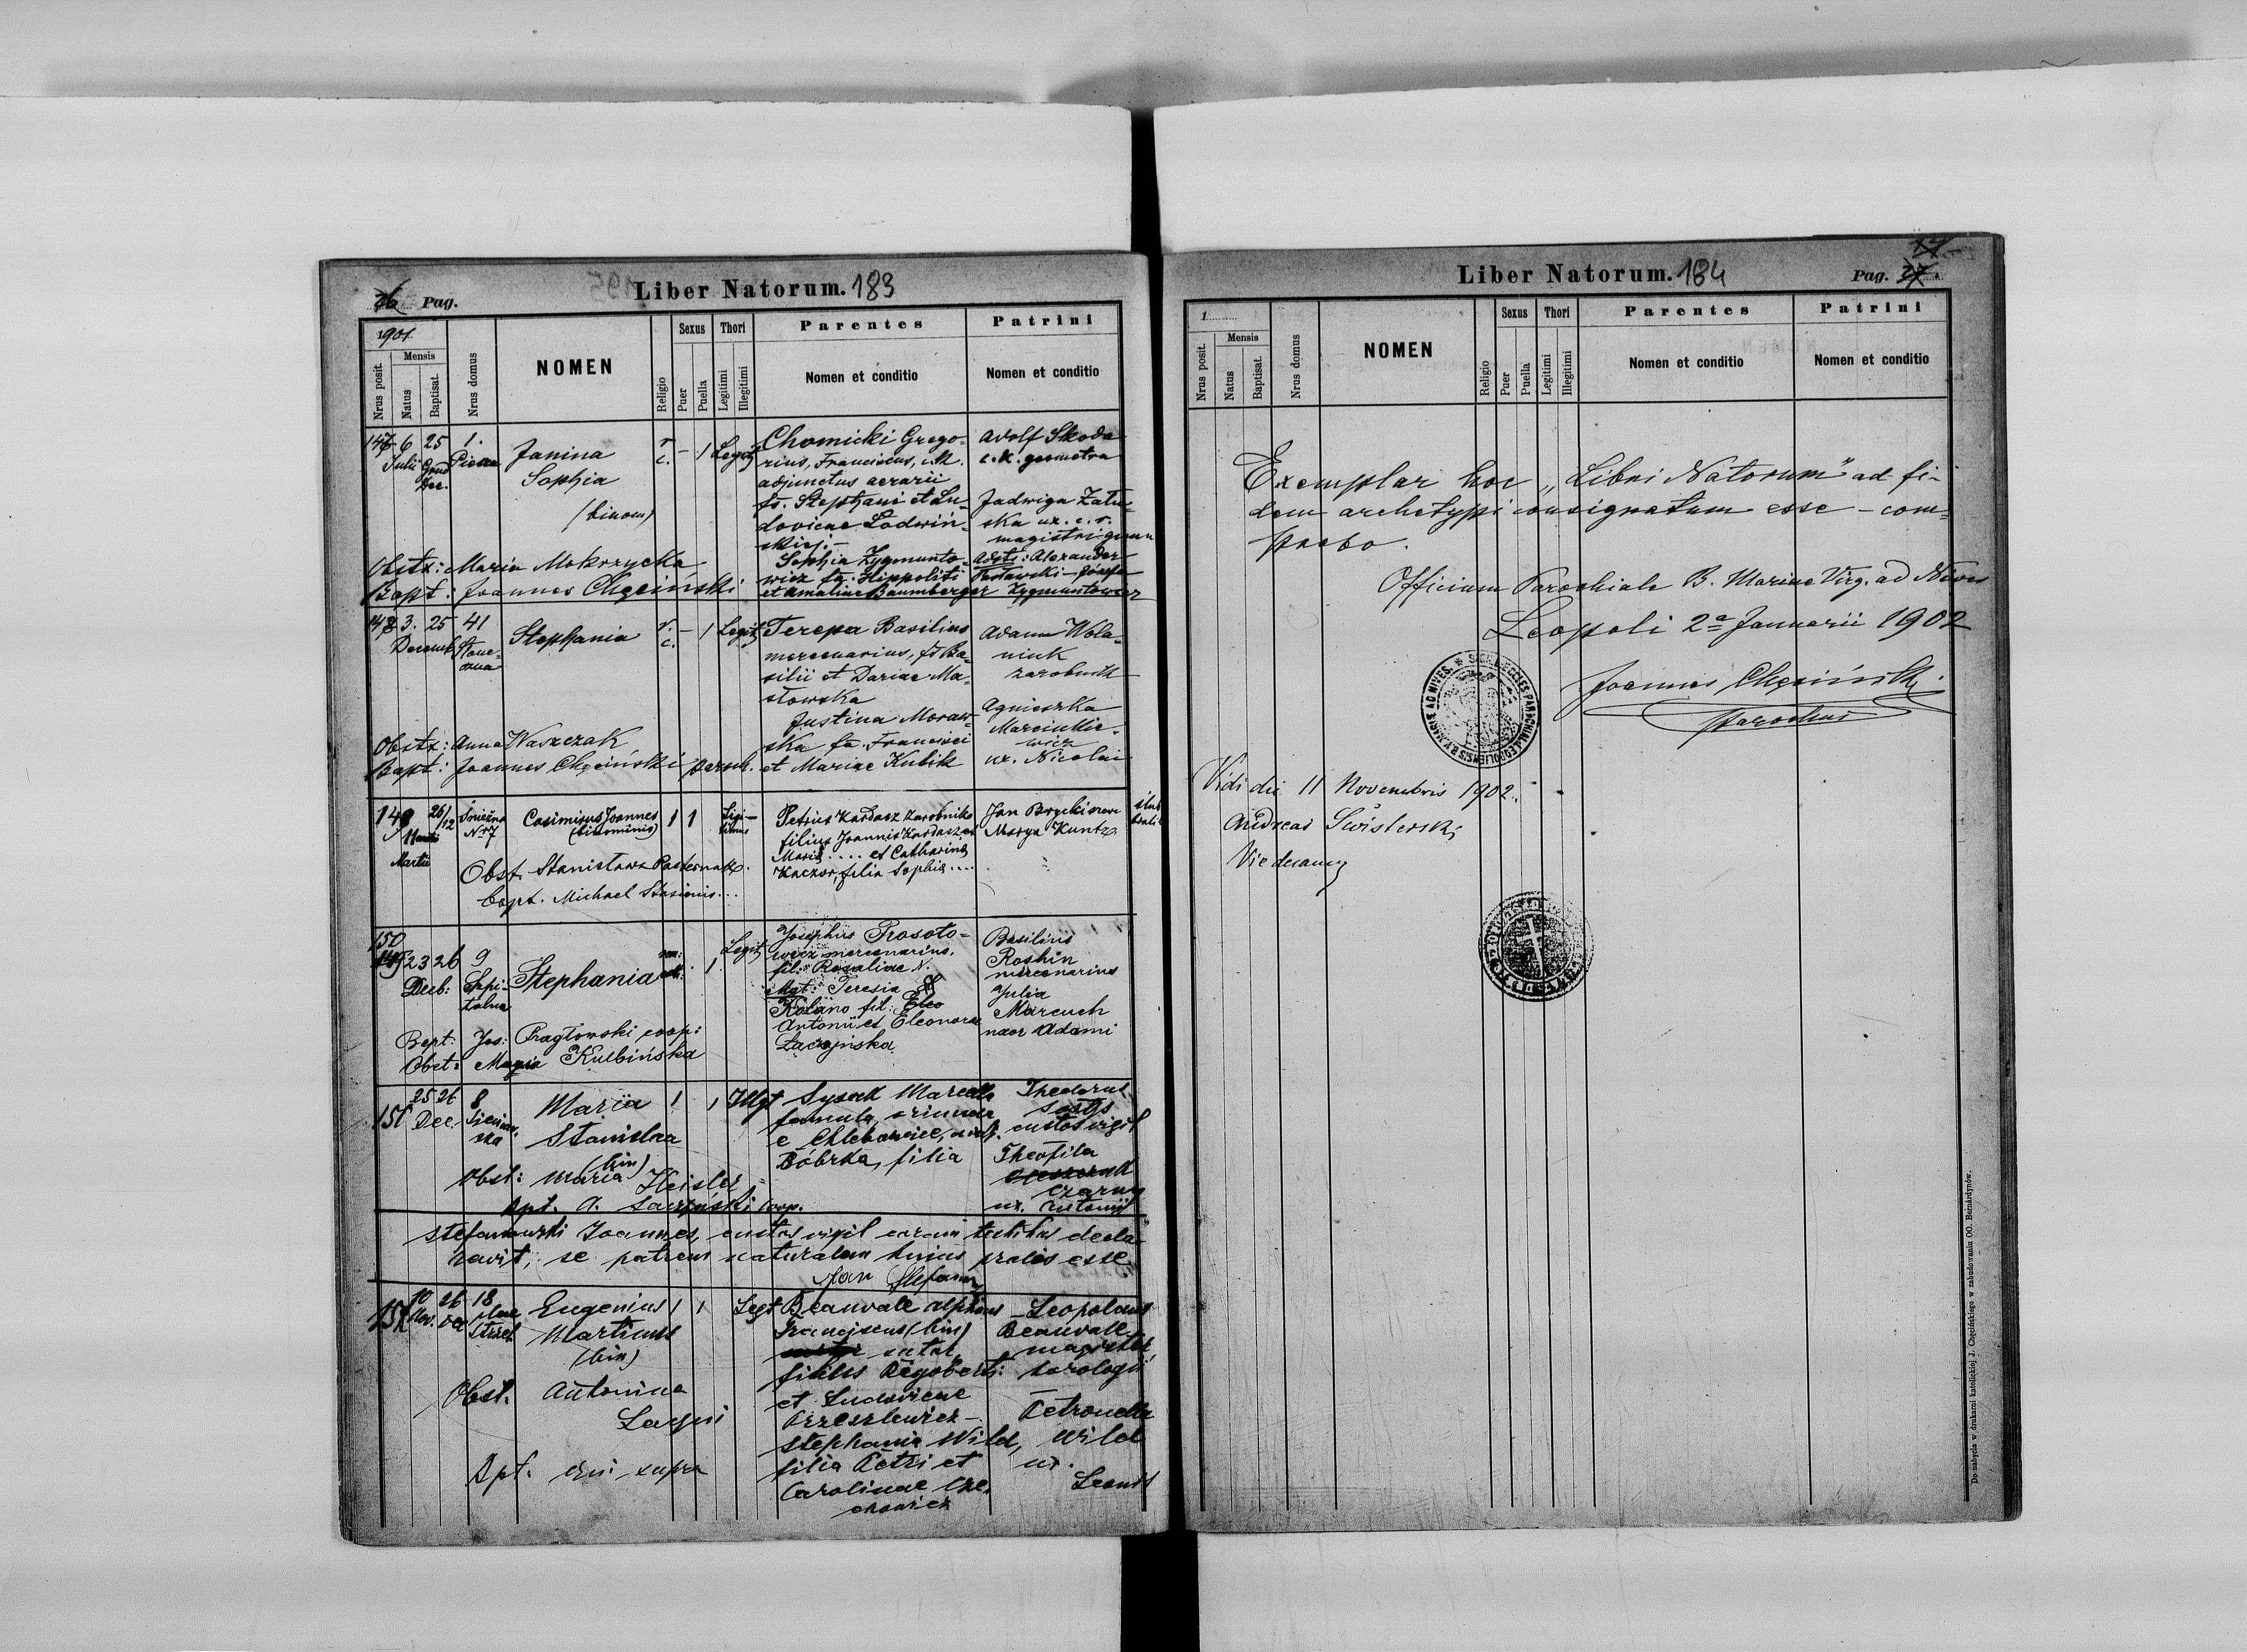 26 Pag.
Liber Natorum. 183
1901.
Nrus posit.
Mensis
Natus
Baptisat.
Nrus domus
NOMEN
Religio
Sexus
Puer
Puella
Thori
Legitimi
Illegitimi
Parentes
Nomen et conditio
Patrini
Nomen et conditio
147 6 25 1.
Julii Grud Dec. Piesza
Janina
Sophia
(binom)
r. c. – 1 Legit
Chomicki Grego-
rius, Franciscus, c.k.
adjunctus aerarii
fs. Stephani et Lu-
dovicae Lodwiń-
skiej.–
Sophia Zygmunto-
wicz fa. Hippoliti
et Amaliae Baumberger
Adolf Skoda
c.k. geometra
Jadwiga Zału-
ska ux. c. r.
magistri
Adsti: Alexander
Józefa
Zygmuntowicz
Obstx: Maria Mokrzycka
Bapt: Joannes Chęciński
148 3. 25 41
Decemb.
Stephania
r. c. – 1 Legit
Terepa Basilius
mercenarius, fs Ba-
silii et Dariae Ma-
słowska
Justina Moraw-
ska fa. Francisci
et Mariae Kubik
Adam Wola-
niuk
zarobnik
Agnieszka
Marcinkie-
wicz
ux. Nicolai
Obstx: Anna Waszczak
Bapt: Joannes Chęciński paroch.
149 26/12
Martii
Śnieżna
Nr 7
Casimirus Joannes
(binominis)
1 1
Legi-
timus
Petrus Kardasz zarobnik
filius Joannis Kardasz et
Maria .... et Catharina
Kaczor, filia Sophia ....
Jan
Marya Kuntz.
Obst. Stanisława Pasternak.
bapt. Michael
150
23 26 9
Decb: Szpi-
talna
Stephania
1
Legit
Josephus Prosoto-
wicz mercenarius,
fil: Rosaliae N.
Mat: Teresia
Kolano fil: Eleo
Antonii et Eleonorae
Łaczyńska.
Basilius
Roshin
mercenarius
Julia
Marcuch
uxor Adami
Bapt. Jos: Pragłowski coop:
Obst: Maria Kulbińska
151 25 26 8
Dec.
Maria
Stanislaa
(bin)
1 1 Illgt
Sysak
famula, oriunda
e Chlebowice,
Bóbrka, filia
Theodorus
custos vigil
Theofila
Czarny
ux. Antonij
Obst: Maria Heisler
Bpt. A. Łaczyński coop.
Stefanowski Joannes, custos vigil coram testibus decla-
ravit, se patrem naturalem hujus prolis esse.
Jan
152 10 26 18
Nov. Dec
Eugenius
Martinus
(bin)
1 1 Legt
Beauvale Alphons
Franciscus (bin)
sutor
filius Dagoberti
et Ludovicae
Orzeszkewicz –
Stephania Wild,
filia Petri et
Carolinae Cze-
chowicz
Leopoldus
Beauvale
magister
horologii
Petronella
Wild
ux.
Leonis
Obst. Antonina
Bpt. qui supra
Liber Natorum. 184
Pag. 37
1
Nrus posit.
Mensis
Natus
Baptisat.
Nrus domus
NOMEN
Religio
Sexus
Puer
Puella
Thori
Legitimi
Illegitimi
Parentes
Nomen et conditio
Patrini
Nomen et conditio
Exemplar hoc „Libri Natorum" ad fi-
dem archetypi consignatum esse – com-
probo.
Officium Parochiale B. Mariae Virg. ad Nives
Leopoli 2a Januarii 1902
Joannes Chęciński
parochus
Vidi die 11 Novembris 1902.
Andreas Świsterski
Vicedecanus
Do nabycia w drukarni katolickiej J. Chęcińskiego w zabudowaniu OO. Bernardynów.